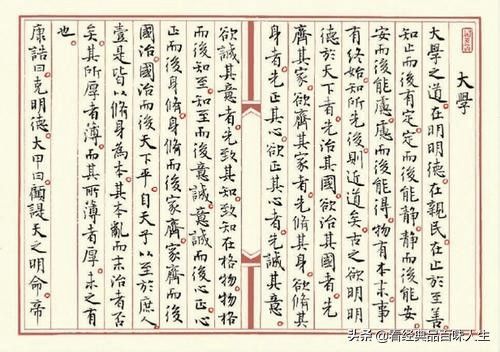 大學
大學之道。在明明德。在親民。在止於至善。
知止而後有定。定而後能靜。靜而後能安。
安而後能慮。慮而後能得。物有本末。事
有終始。知所先後。則近道矣。古之欲明明
德於天下者。先治其國。欲治其國者。先
齊其家。欲齊其家者。先脩其身。欲脩其
身者。先正其心。欲正其心者。先誠其意。
欲誠其意者。先致其知。致知在格物。物格
而後知至。知至而後意誠。意誠而後心正。心
正而後身脩。身脩而後家齊。家齊而後
國治。國治而後天下平。自天子以至於庶人。
壹是皆以脩身為本。其本亂而末治者否
矣。其所厚者薄。而其所薄者厚。未之有
也。
康誥曰。克明德。大甲曰。顧諟天之明命。帝
头条 @看经典品百味人生